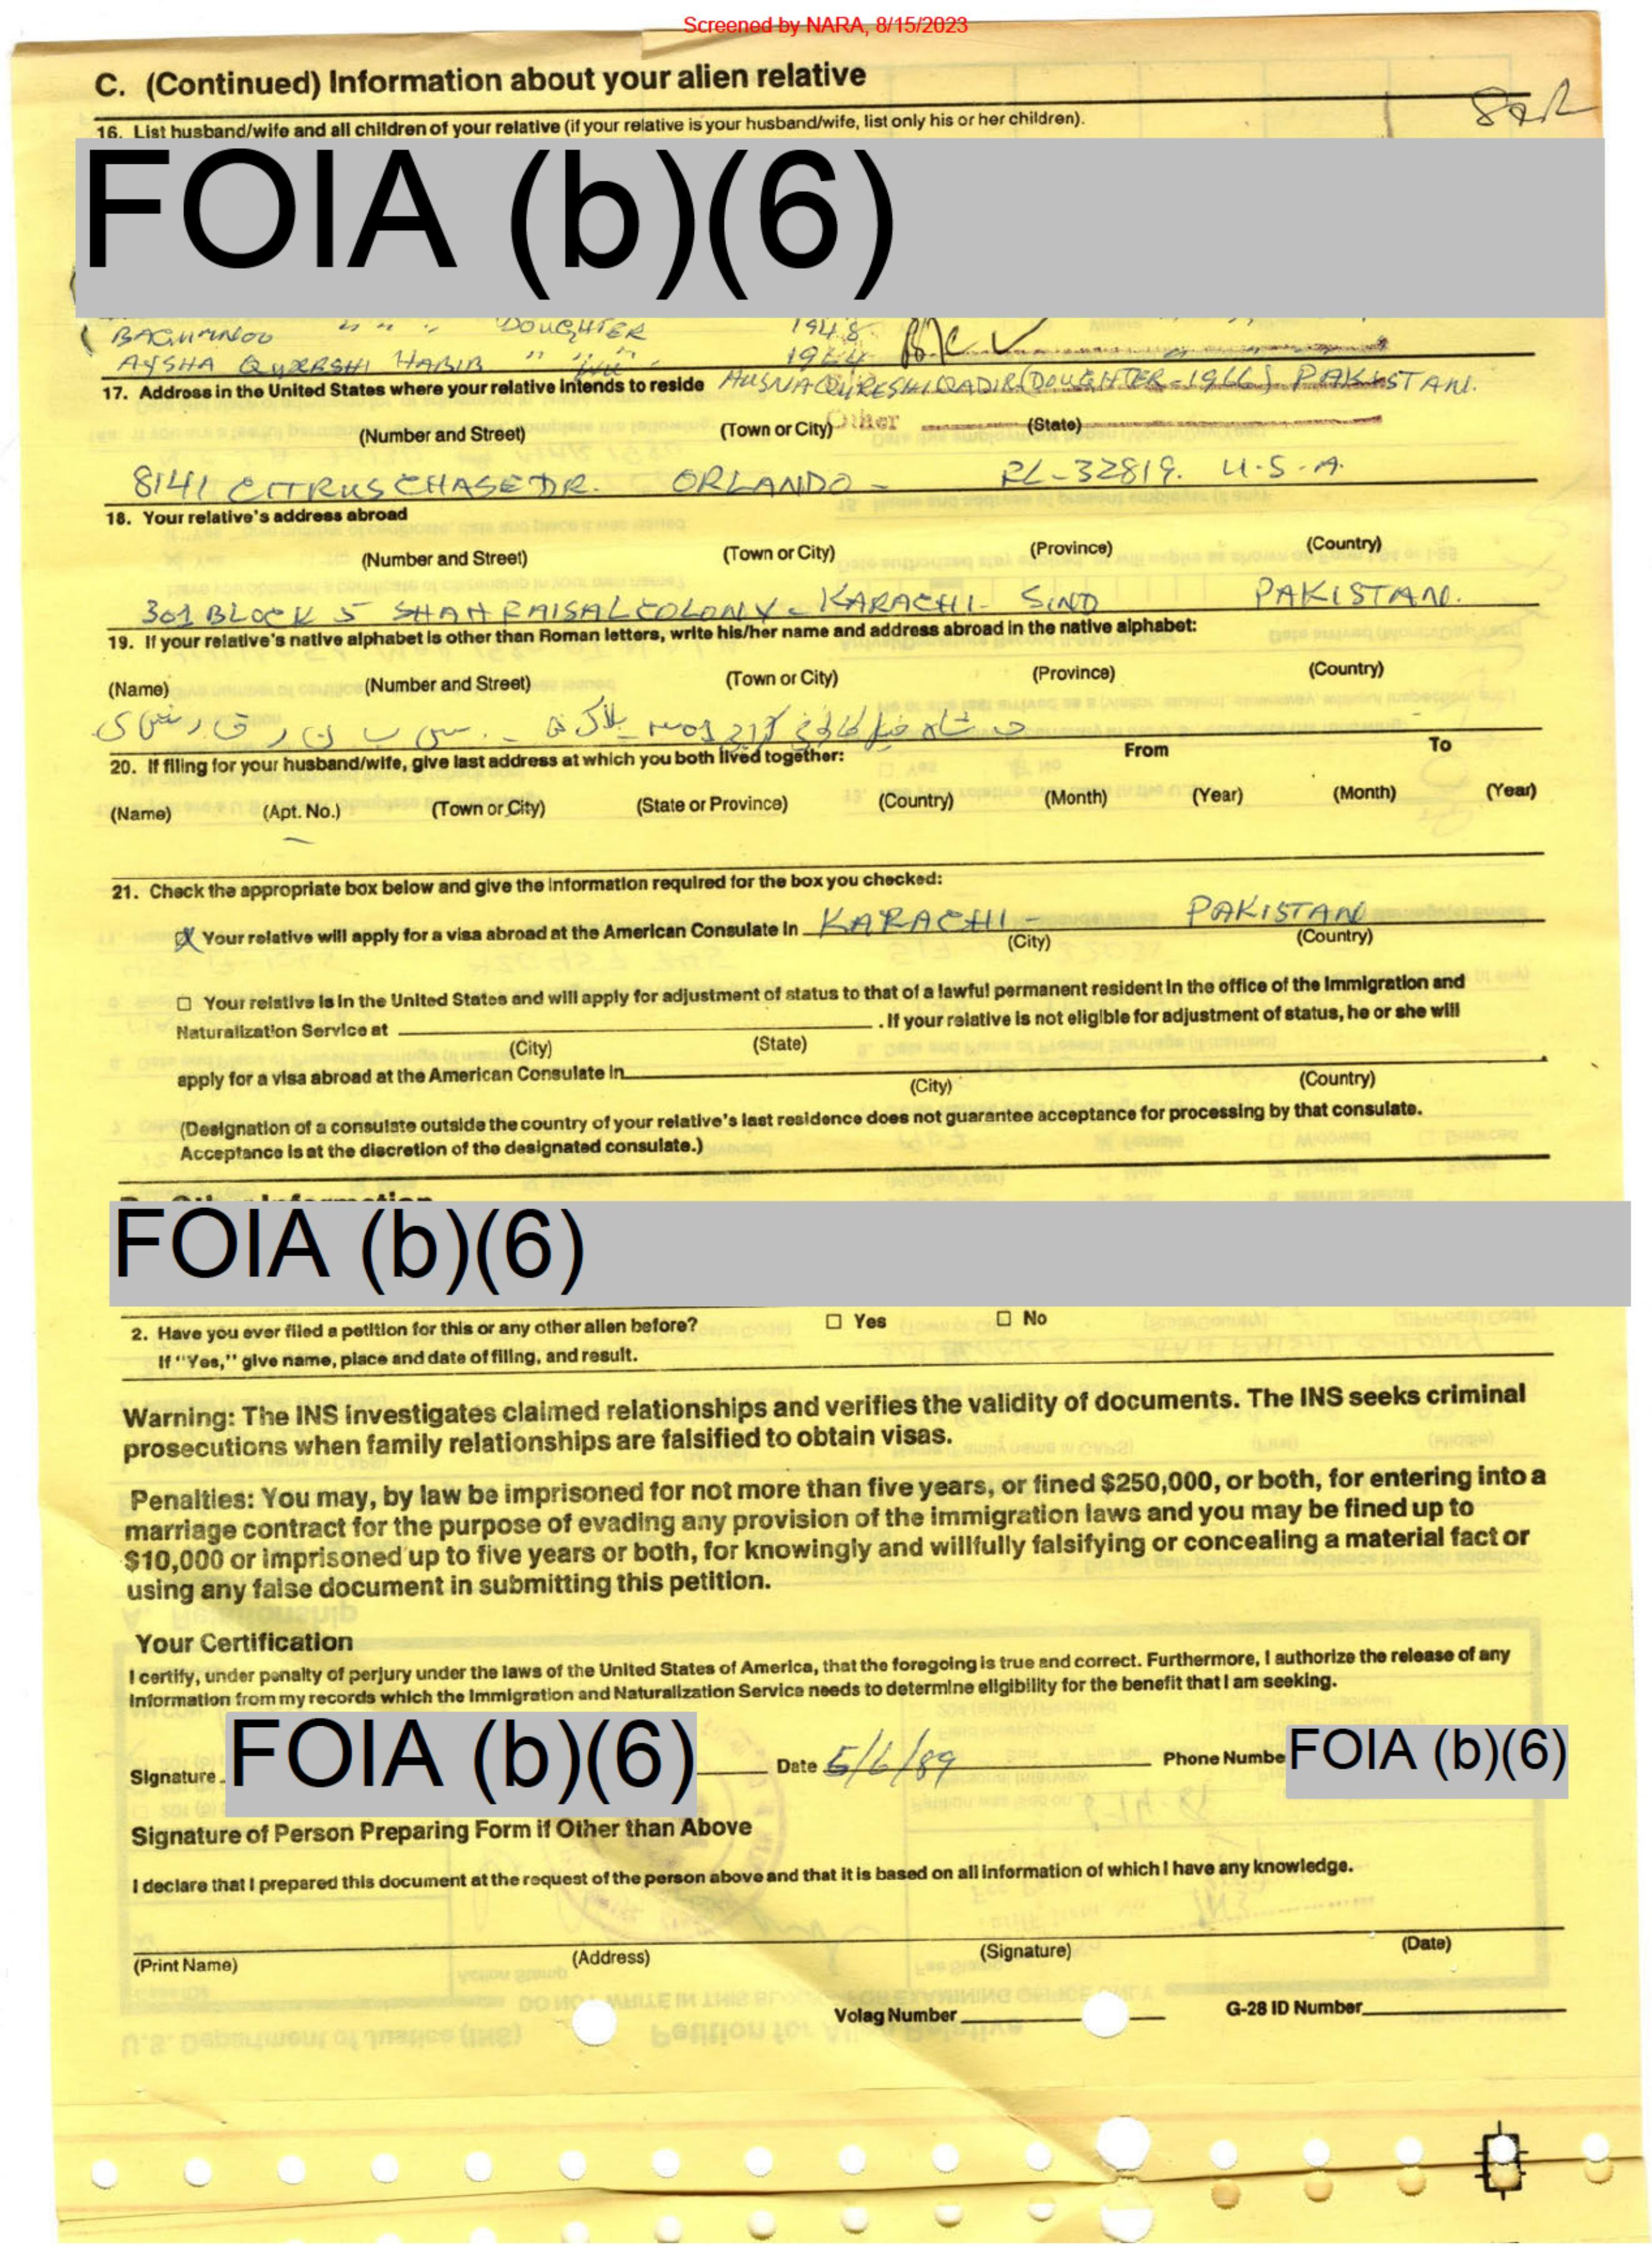 Screened by NARA, 8/15/2023
C. (Continued) Information about your alien relative
16. List husband/wife and all children of your relative (if your relative is your husband/wife, list only his or her children).
FOIA (b)(6)
DOUGHTER 1948
AYSHA QURESHI HABIB " " "
17. Address in the United States where your relative intends to reside HUSNA QURESHI QADIR (DOUGHTER-1966) PAKISTAN.
(Number and Street) (Town or City) Other (State)
8141 CITRUS CHASE DR. ORLANDO - FL-32819. U.S.A.
18. Your relative's address abroad
(Number and Street) (Town or City) (Province) (Country)
301 BLOCK 5 SHAH FAISAL COLONY - KARACHI - SIND PAKISTAN.
19. If your relative's native alphabet is other than Roman letters, write his/her name and address abroad in the native alphabet:
(Name) (Number and Street) (Town or City) (Province) (Country)
20. If filing for your husband/wife, give last address at which you both lived together: From To
(Name) (Apt. No.) (Town or City) (State or Province) (Country) (Month) (Year) (Month) (Year)
21. Check the appropriate box below and give the information required for the box you checked:
Your relative will apply for a visa abroad at the American Consulate in KARACHI - PAKISTAN
(City) (Country)
☐ Your relative is in the United States and will apply for adjustment of status to that of a lawful permanent resident in the office of the Immigration and
Naturalization Service at . If your relative is not eligible for adjustment of status, he or she will
(City) (State)
apply for a visa abroad at the American Consulate in
(City) (Country)
(Designation of a consulate outside the country of your relative's last residence does not guarantee acceptance for processing by that consulate.
Acceptance is at the discretion of the designated consulate.)
FOIA (b)(6)
2. Have you ever filed a petition for this or any other alien before? ☐ Yes ☐ No
If "Yes," give name, place and date of filing, and result.
Warning: The INS investigates claimed relationships and verifies the validity of documents. The INS seeks criminal
prosecutions when family relationships are falsified to obtain visas.
Penalties: You may, by law be imprisoned for not more than five years, or fined $250,000, or both, for entering into a
marriage contract for the purpose of evading any provision of the immigration laws and you may be fined up to
$10,000 or imprisoned up to five years or both, for knowingly and willfully falsifying or concealing a material fact or
using any false document in submitting this petition.
Your Certification
I certify, under penalty of perjury under the laws of the United States of America, that the foregoing is true and correct. Furthermore, I authorize the release of any
information from my records which the Immigration and Naturalization Service needs to determine eligibility for the benefit that I am seeking.
Signature FOIA (b)(6) Date 5/6/89 Phone Numbe FOIA (b)(6)
Signature of Person Preparing Form if Other than Above
I declare that I prepared this document at the request of the person above and that it is based on all information of which I have any knowledge.
(Print Name) (Address) (Signature) (Date)
Volag Number G-28 ID Number